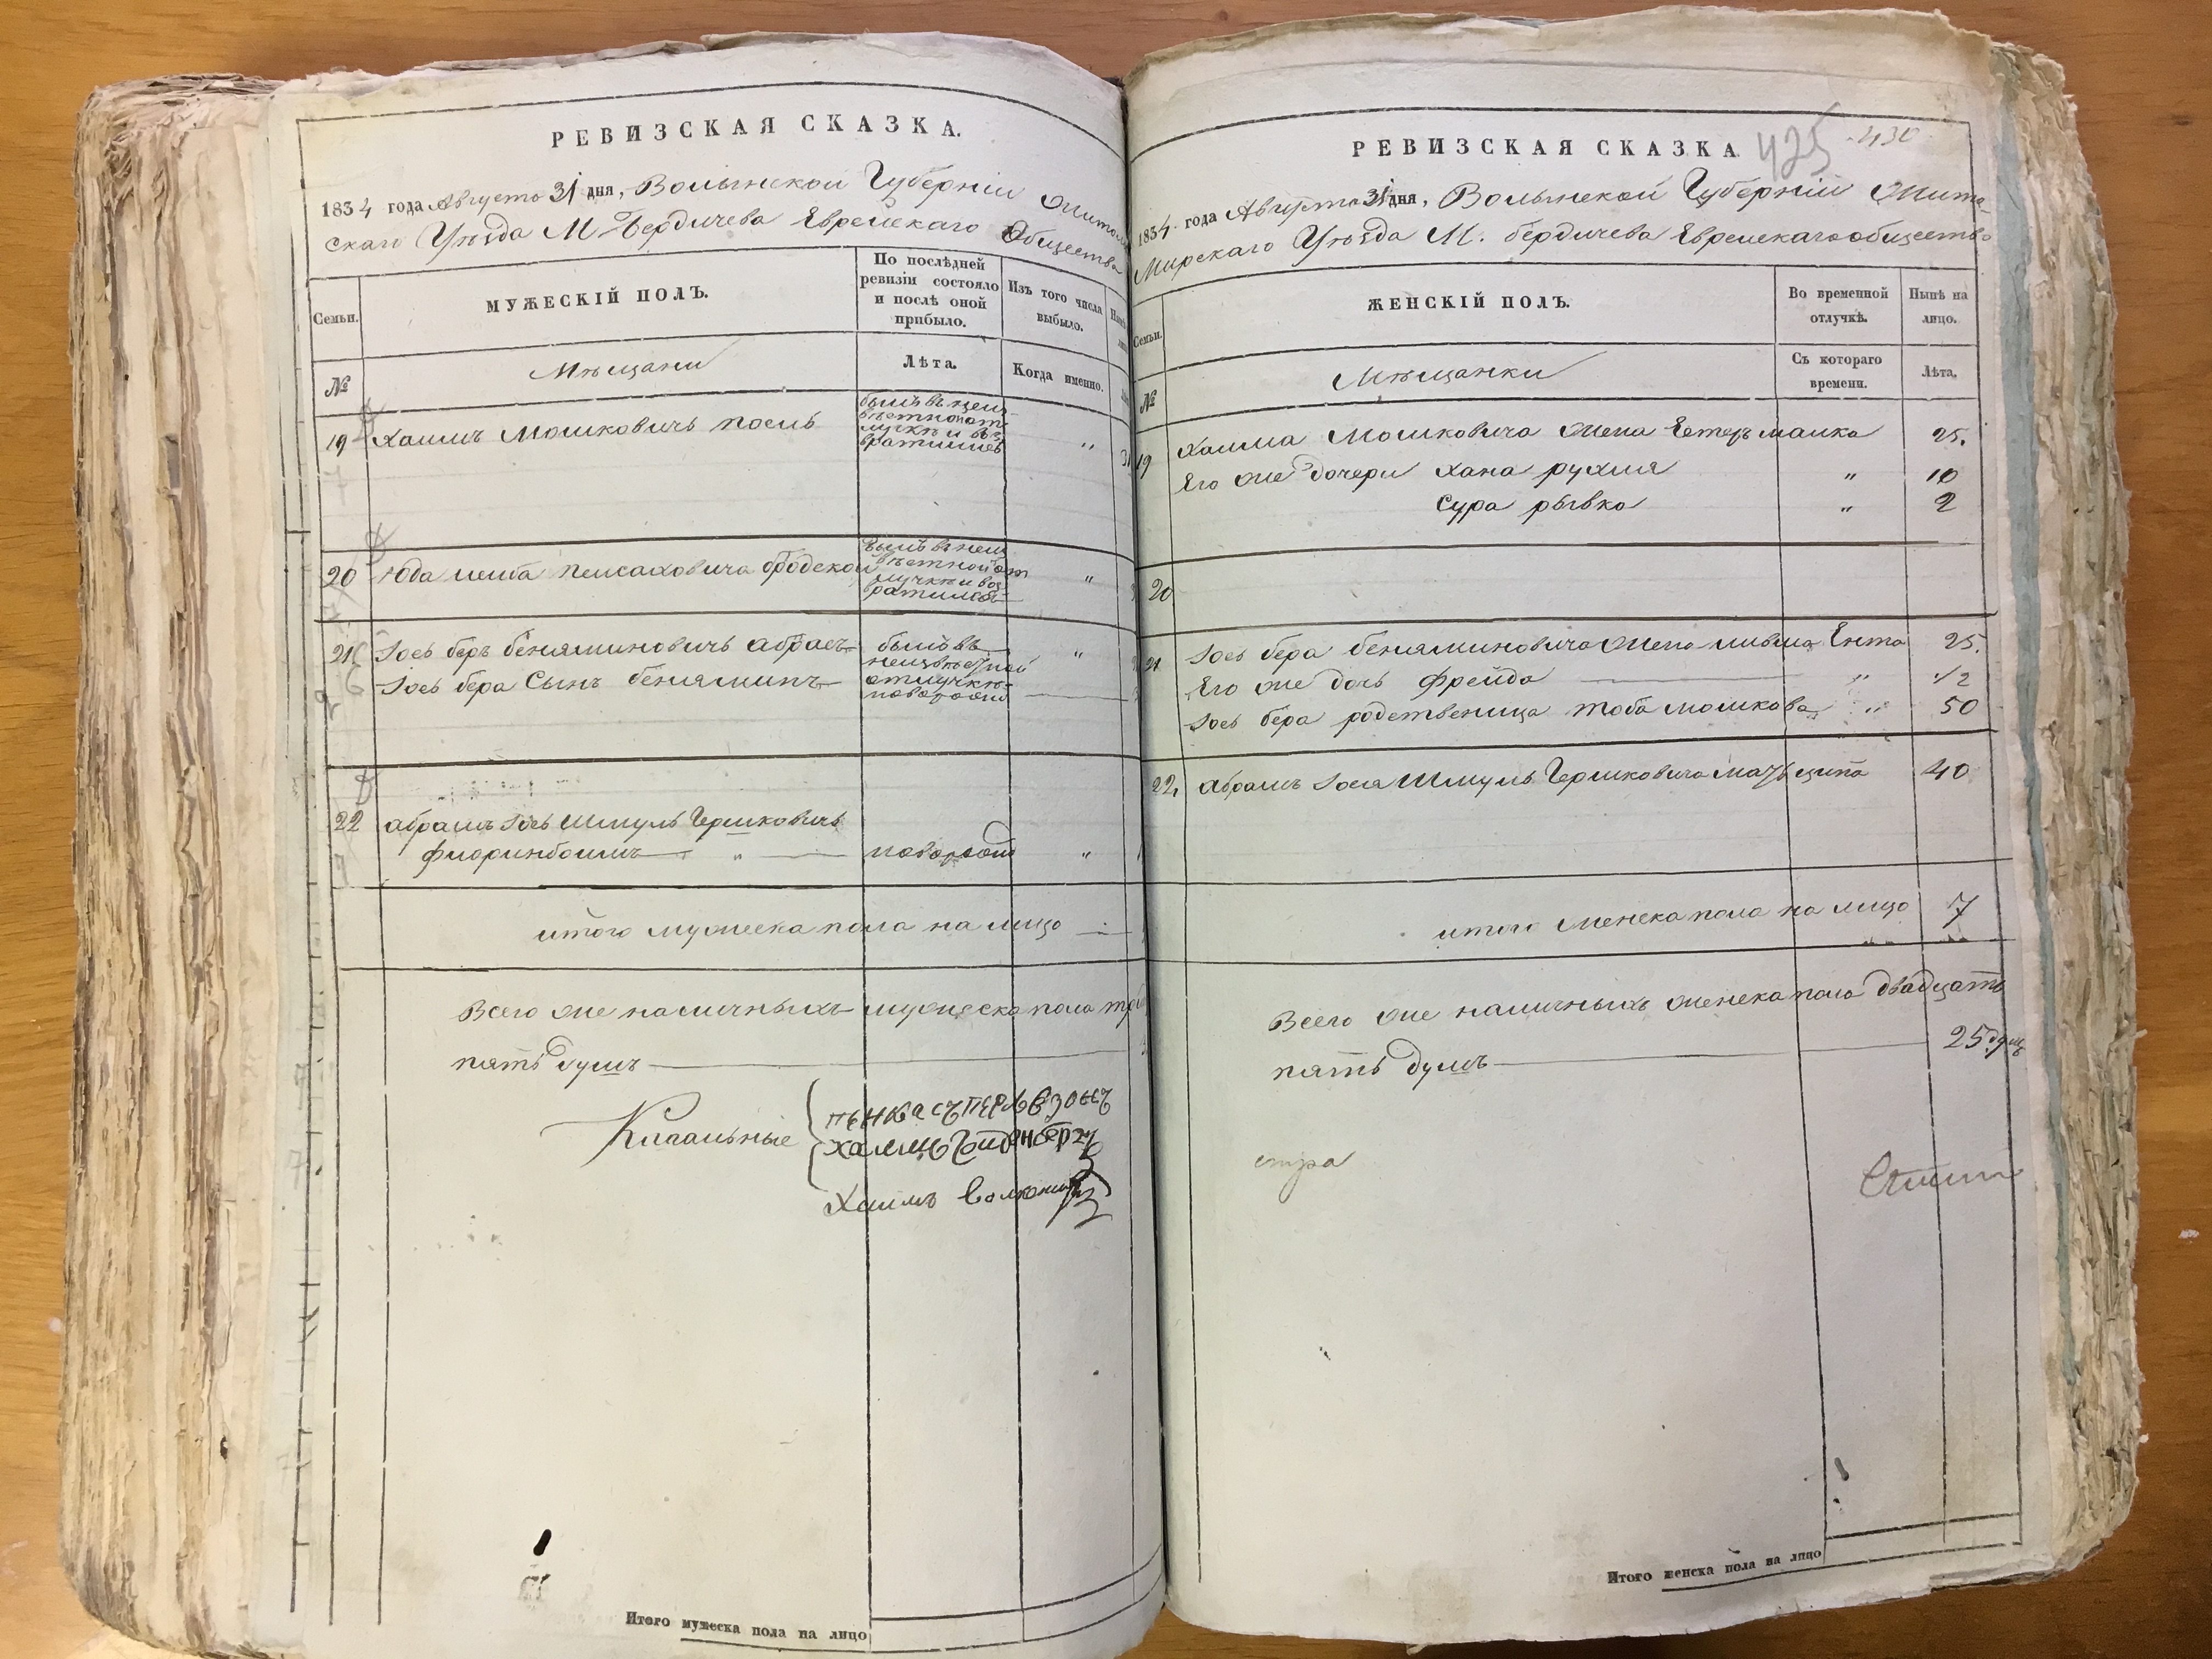 РЕВИЗСКАЯ СКАЗКА.
1834 года Августа 31 дня, Волынской Губерніи Жито
скаго Уѣзда М. Бердичева Еврейскаго Общества
Семьи.
МУЖЕСКІЙ ПОЛЪ.
По послѣдней ревизіи состояло и послѣ оной прибыло.
Изъ того числа выбыло.
№
Мѣщани
Лѣта.
Когда именно.
19 Хаимъ Мошковичъ
былъ въ неиз
вѣстной от
лучкѣ и воз
вратился
"
20 Юда лейба пейсаховича бродской
былъ въ неиз
вѣстной от
лучкѣ и воз
ратился
"
21 Іось беръ беняминовичъ
былъ въ
неизвѣстной
отлучкѣ
"
Іось бера Сынъ беняминъ
новорож
22 абрамъ Іось Шмуль Гершковичъ
"
новорож
"
итого мужеска пола на лицо
Всего же наличныхъ мужеска пола
пять душъ
Кагальные
Хаимъ
РЕВИЗСКАЯ СКАЗКА
425
430
1834 года Августа 31 дня, Волынской Губерніи Жито-
Мирскаго Уѣзда М. бердичева Еврейскаго общества
Семьи.
ЖЕНСКІЙ ПОЛЪ.
Во временной отлучкѣ.
Нынѣ на лицо.
№
Мѣщанки
Съ котораго времени.
Лѣта.
19 Хаима Мошковича жена Естеръ малка 25.
Его же дочери Хана рухля " 10
Сура рывка " 2
20
21 Іось бера беняминовича жена Ента 25.
Его же дочь фрейда " 1/2
Іось бера родственица тоба мошкова " 50
22. абрамъ Іося Шмуль Гершковича мать ципа 40
итого женска пола на лицо 7
Всего же наличныхъ женска пола двадцать
пять душъ 25 душъ
Итого мужеска пола на лицо
Итого женска пола на лицо